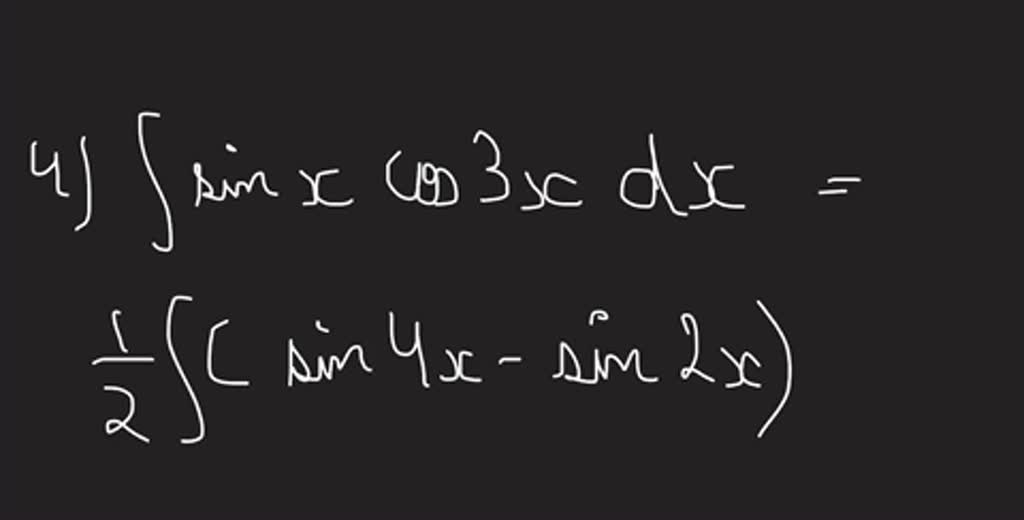 4) ∫ sin x cos 3x dx =
1/2 ∫ ( sin 4x - sin 2x)